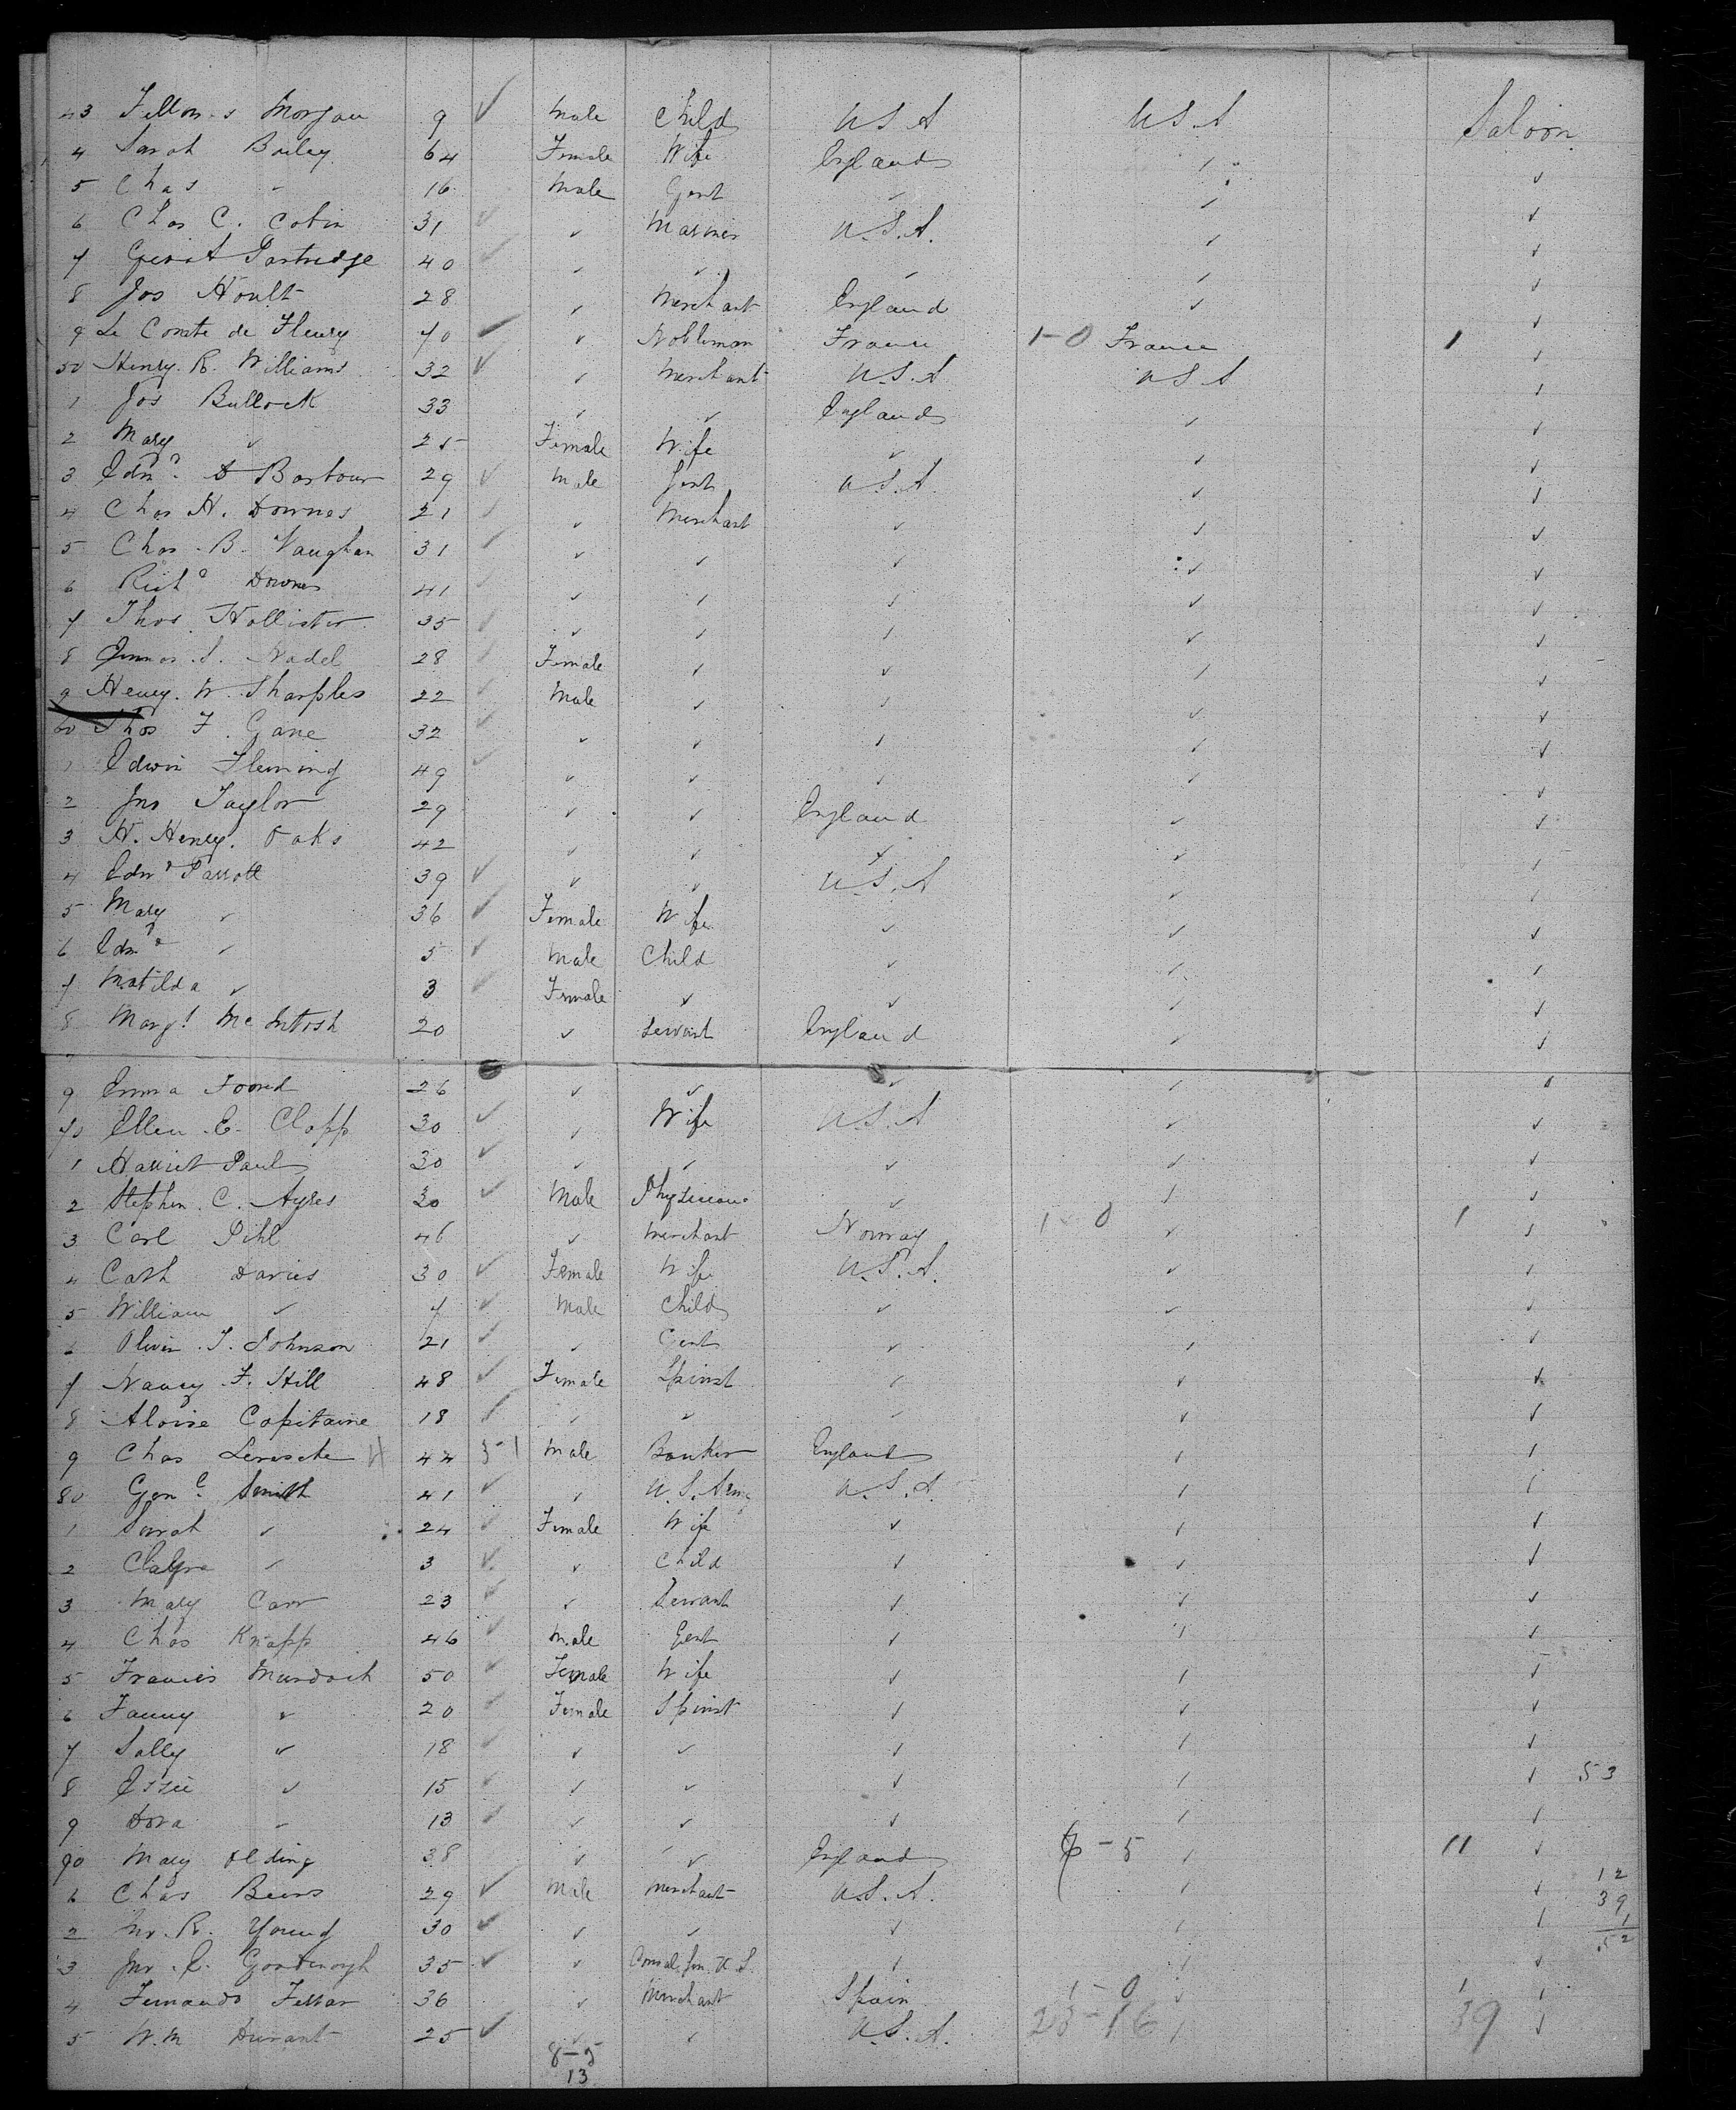 43 Fellows Morgan 9 ✓ Male Child U S A U S A Saloon
4 Sarah Bailey 64 Female Wife England ✓ ✓
5 Chas " 16 Male Gent ✓ ✓ ✓
6 Chas C. Cobin 31 ✓ ✓ Mariner U.S.A. ✓ ✓
7 Partridge 40 ✓ ✓ ✓ ✓ ✓ ✓
8 Jos Hoult 28 ✓ Merchant England ✓ ✓
9 Le Comte de Fleury 70 ✓ ✓ Nobleman France 1-0 France 1 ✓
50 Henry R. Williams 32 ✓ ✓ Merchant U.S.A U S A ✓
1 Jos Bullock 33 ✓ ✓ England ✓ ✓
2 Mary ✓ 25 Female Wife ✓ ✓ ✓
3 Edwd D Barbour 29 ✓ Male Gent U.S.A. ✓ ✓
4 Chas H. Downes 21 ✓ ✓ Merchant ✓ ✓ ✓
5 Chas. B. Vaughan 31 ✓ ✓ ✓ ✓ ✓ ✓
6 Richd Downes 41 ✓ ✓ ✓ ✓ ✓ ✓
7 Thos. Hollister 35 ✓ ✓ ✓ ✓ ✓ ✓
8 S. Nadel 28 ✓ Female ✓ ✓ ✓ ✓
9 Henry. W. Sharples 22 ✓ Male ✓ ✓ ✓ ✓
60 Thos F. Gane 32 ✓ ✓ ✓ ✓ ✓ ✓
1 Edwin Fleming 49 ✓ ✓ ✓ ✓ ✓ ✓
2 Jno Taylor 29 ✓ ✓ England ✓ ✓
3 H. Henry. Oaks 42 ✓ ✓ ✓ ✓ ✓
4 Edwd Parrott 39 ✓ ✓ ✓ U.S.A ✓ ✓
5 Mary ✓ 36 ✓ Female Wife ✓ ✓ ✓
6 Edwd ✓ 5 ✓ Male Child ✓ ✓ ✓
7 Matilda ✓ 3 ✓ Female ✓ ✓ ✓ ✓
8 Margt McIntosh 20 ✓ Servant England ✓ ✓
9 Emma Foord 26 ✓ ✓ ✓ ✓ ✓
70 Ellen. E. Clapp 30 ✓ ✓ Wife U.S.A ✓ ✓
1 Harriet Paul 30 ✓ ✓ ✓ ✓ ✓ ✓
2 Stephen. C. Ayres 30 ✓ Male Physician ✓ ✓ ✓
3 Carl Pihl 46 ✓ Merchant Norway 1-0 ✓ 1 ✓
4 Cath Davies 30 ✓ Female Wife U.S.A. ✓ ✓
5 William ✓ 7 ✓ Male Child ✓ ✓ ✓
6 Oliver. T. Johnson 21 ✓ ✓ Gent ✓ ✓ ✓
7 Nancy F. Hill 48 ✓ Female Spinst ✓ ✓ ✓
8 Aloise Capitaine 18 ✓ ✓ ✓ ✓ ✓ ✓
9 Chas 44 Male Banker England ✓ ✓
80 Genl Smith 41 ✓ ✓ U.S. Army U.S.A. ✓ ✓
1 Sarah ✓ 24 ✓ Female Wife ✓ ✓ ✓
2 ✓ 3 ✓ ✓ Child ✓ ✓ ✓
3 Mary Carr 23 ✓ ✓ Servant ✓ ✓ ✓
4 Chas Knapp 46 ✓ Male Gent ✓ ✓ ✓
5 Francis Murdoch 50 ✓ Female Wife ✓ ✓ ✓
6 Fanny ✓ 20 ✓ Female Spinst ✓ ✓ ✓
7 Sally ✓ 18 ✓ ✓ ✓ ✓ ✓ ✓
8 Essie ✓ 15 ✓ ✓ ✓ ✓ ✓ ✓ 53
9 Dora ✓ 13 ✓ ✓ ✓ ✓ ✓ ✓
90 Mary Olding 38 ✓ ✓ England 6-5 ✓ 11 ✓
1 Chas Beers 29 ✓ Male Merchant U.S.A. ✓ ✓ 12
39
2 Jno. R. Young 30 ✓ ✓ ✓ ✓ ✓ ✓ 1
52
3 Jno. C. 35 ✓ ✓ Consul. Gen. U.S. ✓ ✓ ✓
4 Fernando 36 ✓ Merchant Spain 1-0 ✓ 1 ✓
5 W.M Durant 25 ✓ ✓ ✓ U.S.A. 23-16 ✓ 39 ✓
8-5
13